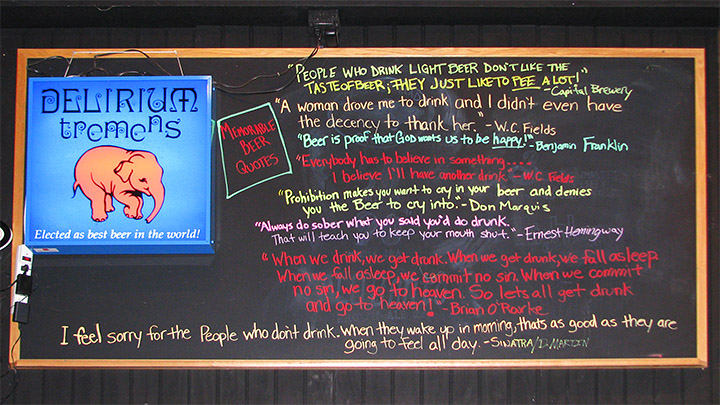 DELIRIUM
tremens
Elected as best beer in the world!
MEMORABLE
BEER
QUOTES
"PEOPLE WHO DRINK LIGHT BEER DON'T LIKE THE
TASTE OF BEER; THEY JUST LIKE TO PEE A LOT!"
-Capital Brewery
"A woman drove me to drink and I didn't even have
the decency to thank her." - W.C. Fields
"Beer is proof that God wants us to be happy!" - Benjamin Franklin
"Everybody has to believe in something.....
I believe I'll have another drink." - W.C. Fields
"Prohibition makes you want to cry in your beer and denies
you the Beer to cry into." - Don Marquis
"Always do sober what you said you'd do drunk.
That will teach you to keep your mouth shut." - Ernest Hemingway
"When we drink, we get drunk. When we get drunk, we fall asleep
When we fall asleep, we commit no sin. When we commit
no sin, we go to heaven. So lets all get drunk
and go to heaven!" - Brian O'Rourke
I feel sorry for the People who don't drink. When they wake up in morning, thats as good as they are
going to feel all day. - SINATRA/D. MARTIN